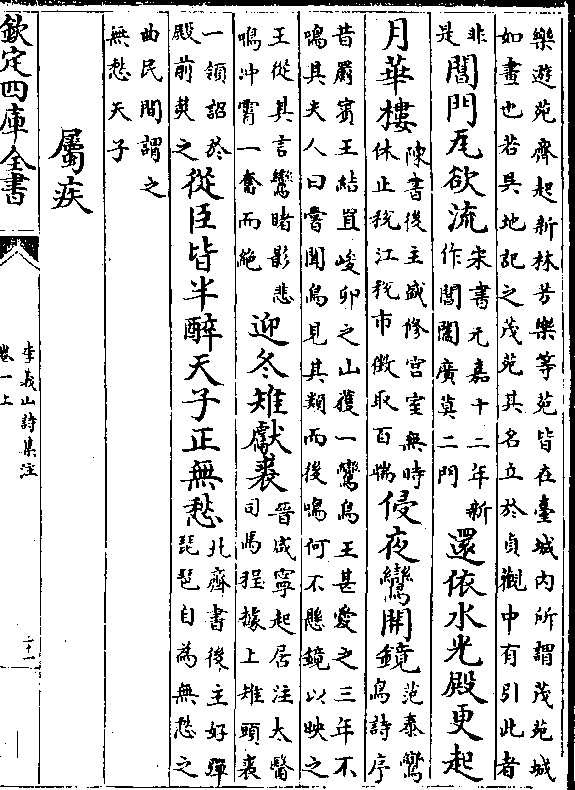 樂遊苑齊起新林芳樂等苑皆在臺城内所謂茂苑城
如畫也若吳地記之茂苑其名立於貞觀中有引此者
非
是閶門瓦欲流宋書元嘉十二年新
作閶闔廣莫二門還依水光殿更起
月華樓陳書後主盛修宫室無時
休止税江税市徴取百端侵夜鸞開鏡范泰鸞
鳥詩序
昔罽賓王結罝峻卯之山獲一鸞鳥王甚愛之三年不
鳴其夫人曰嘗聞鳥見其類而後鳴何不懸鏡以映之
王從其言鸞睹影悲
鳴沖霄一奮而絶迎冬雉獻裘晉咸寧起居注太醫
司馬程據上雉頭裘
一領詔於
殿前焚之從臣皆半醉天子正無愁北齊書後主好彈
琵琶自為無愁之
曲民間謂之
無愁天子
屬疾
欽定四庫全書
李義山詩集注
卷一上
二十一